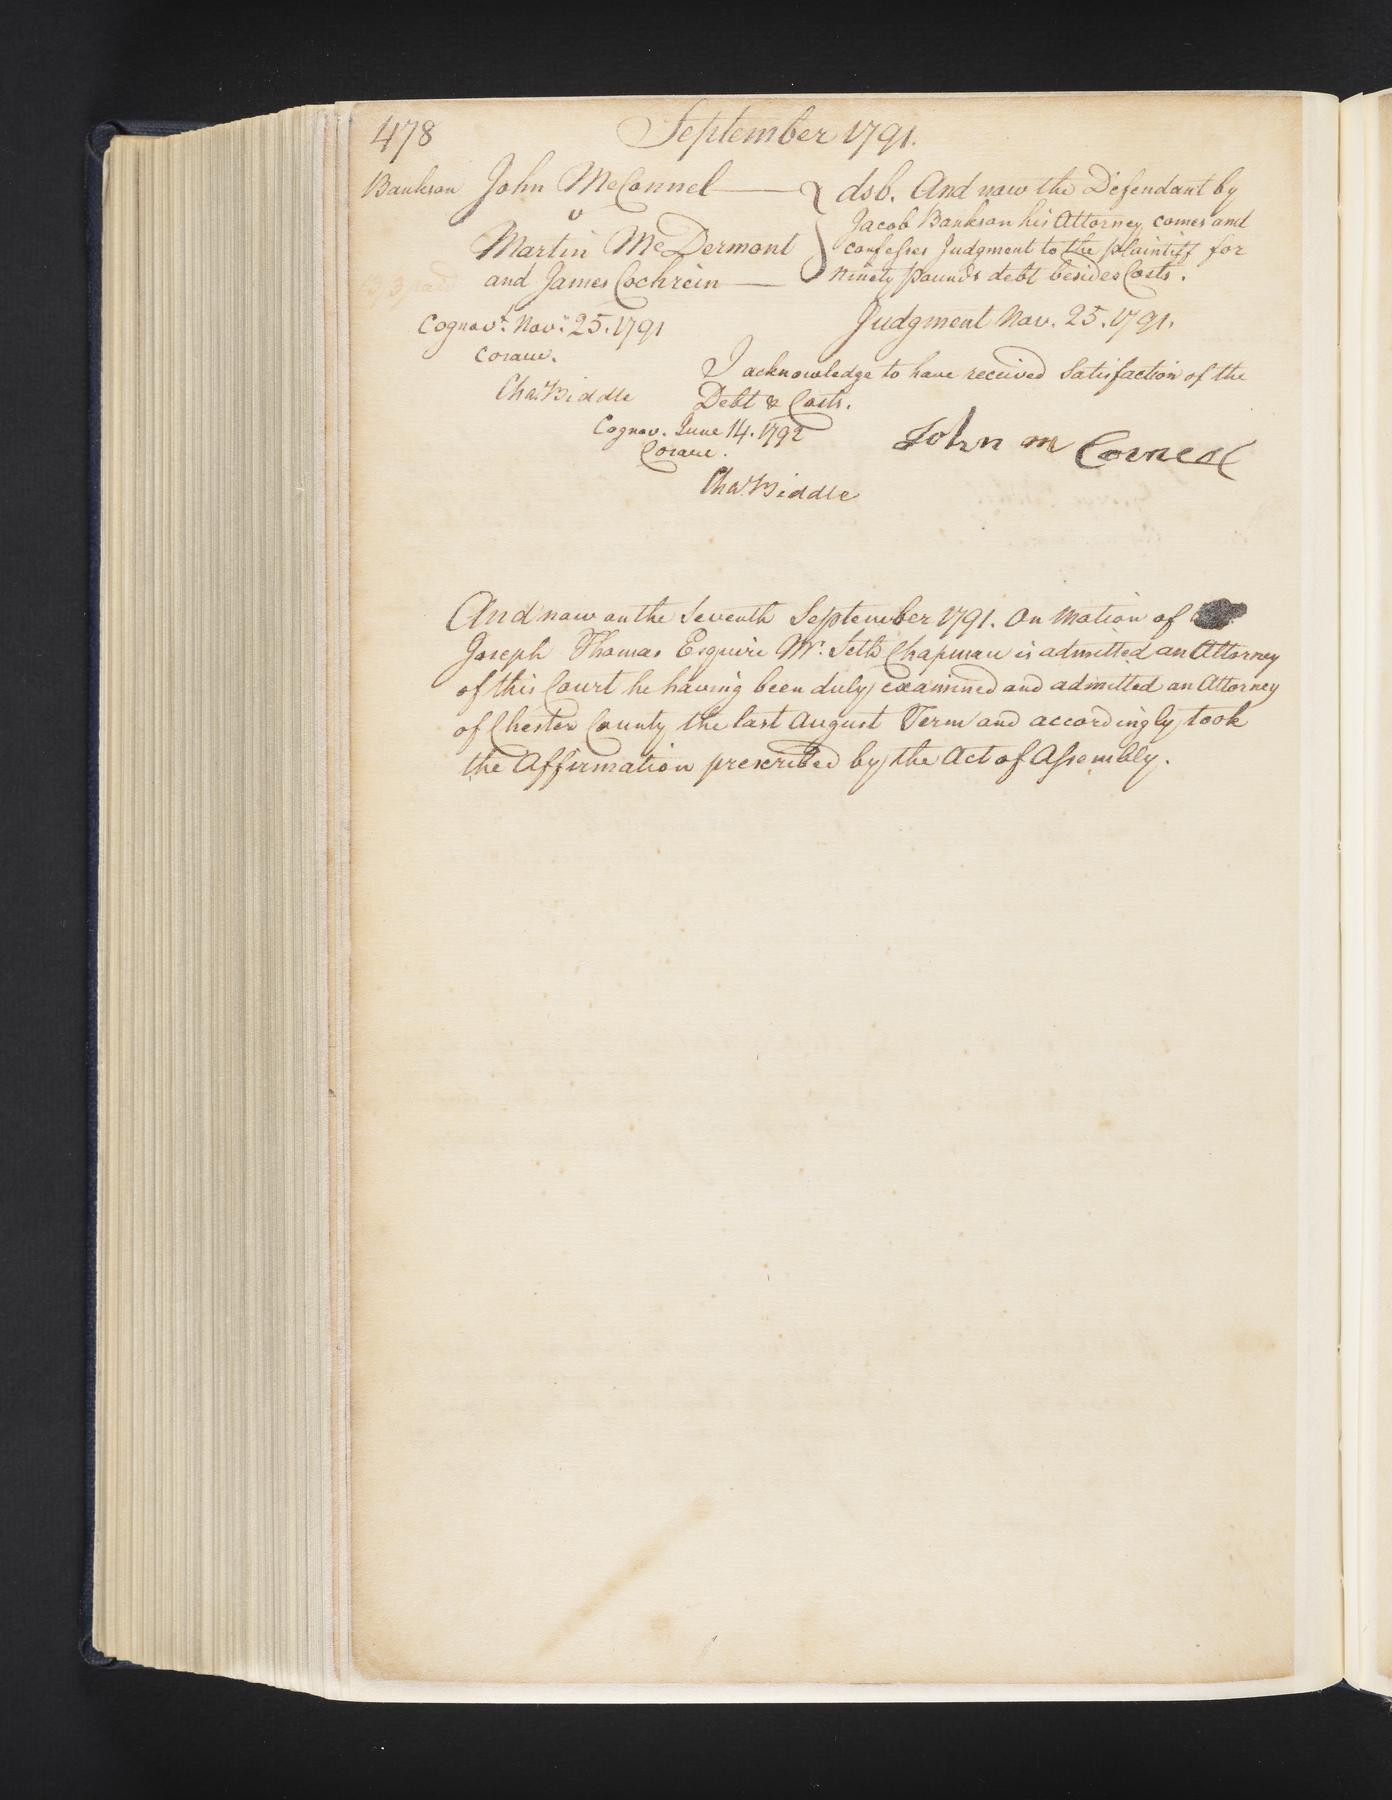 478
September 1791.
Bankson John McConnel
v
Martin McDermont
and James Cochrein
dsb. And now the Defendant by
Jacob Bankson his Attorney comes and
confesses Judgment to the plaintiff for
ninety pounds debt besides Costs.
Judgment Nov. 25. 1791.
Cognovt. Novr. 25. 1791
Coram.
Chas. Biddle
I acknowledge to have received Satisfaction of the
Debt & Costs.
Cognov. June 14. 1792
Coram.
John m Connel
Chas. Biddle
And now on the Seventh September 1791. On Motion of
Joseph Thomas Esquire Mr. Seth Chapman is admitted an Attorney
of this Court he having been duly examined and admitted an Attorney
of Chester County the last August Term and accordingly took
the Affirmation prescribed by the Act of Assembly.